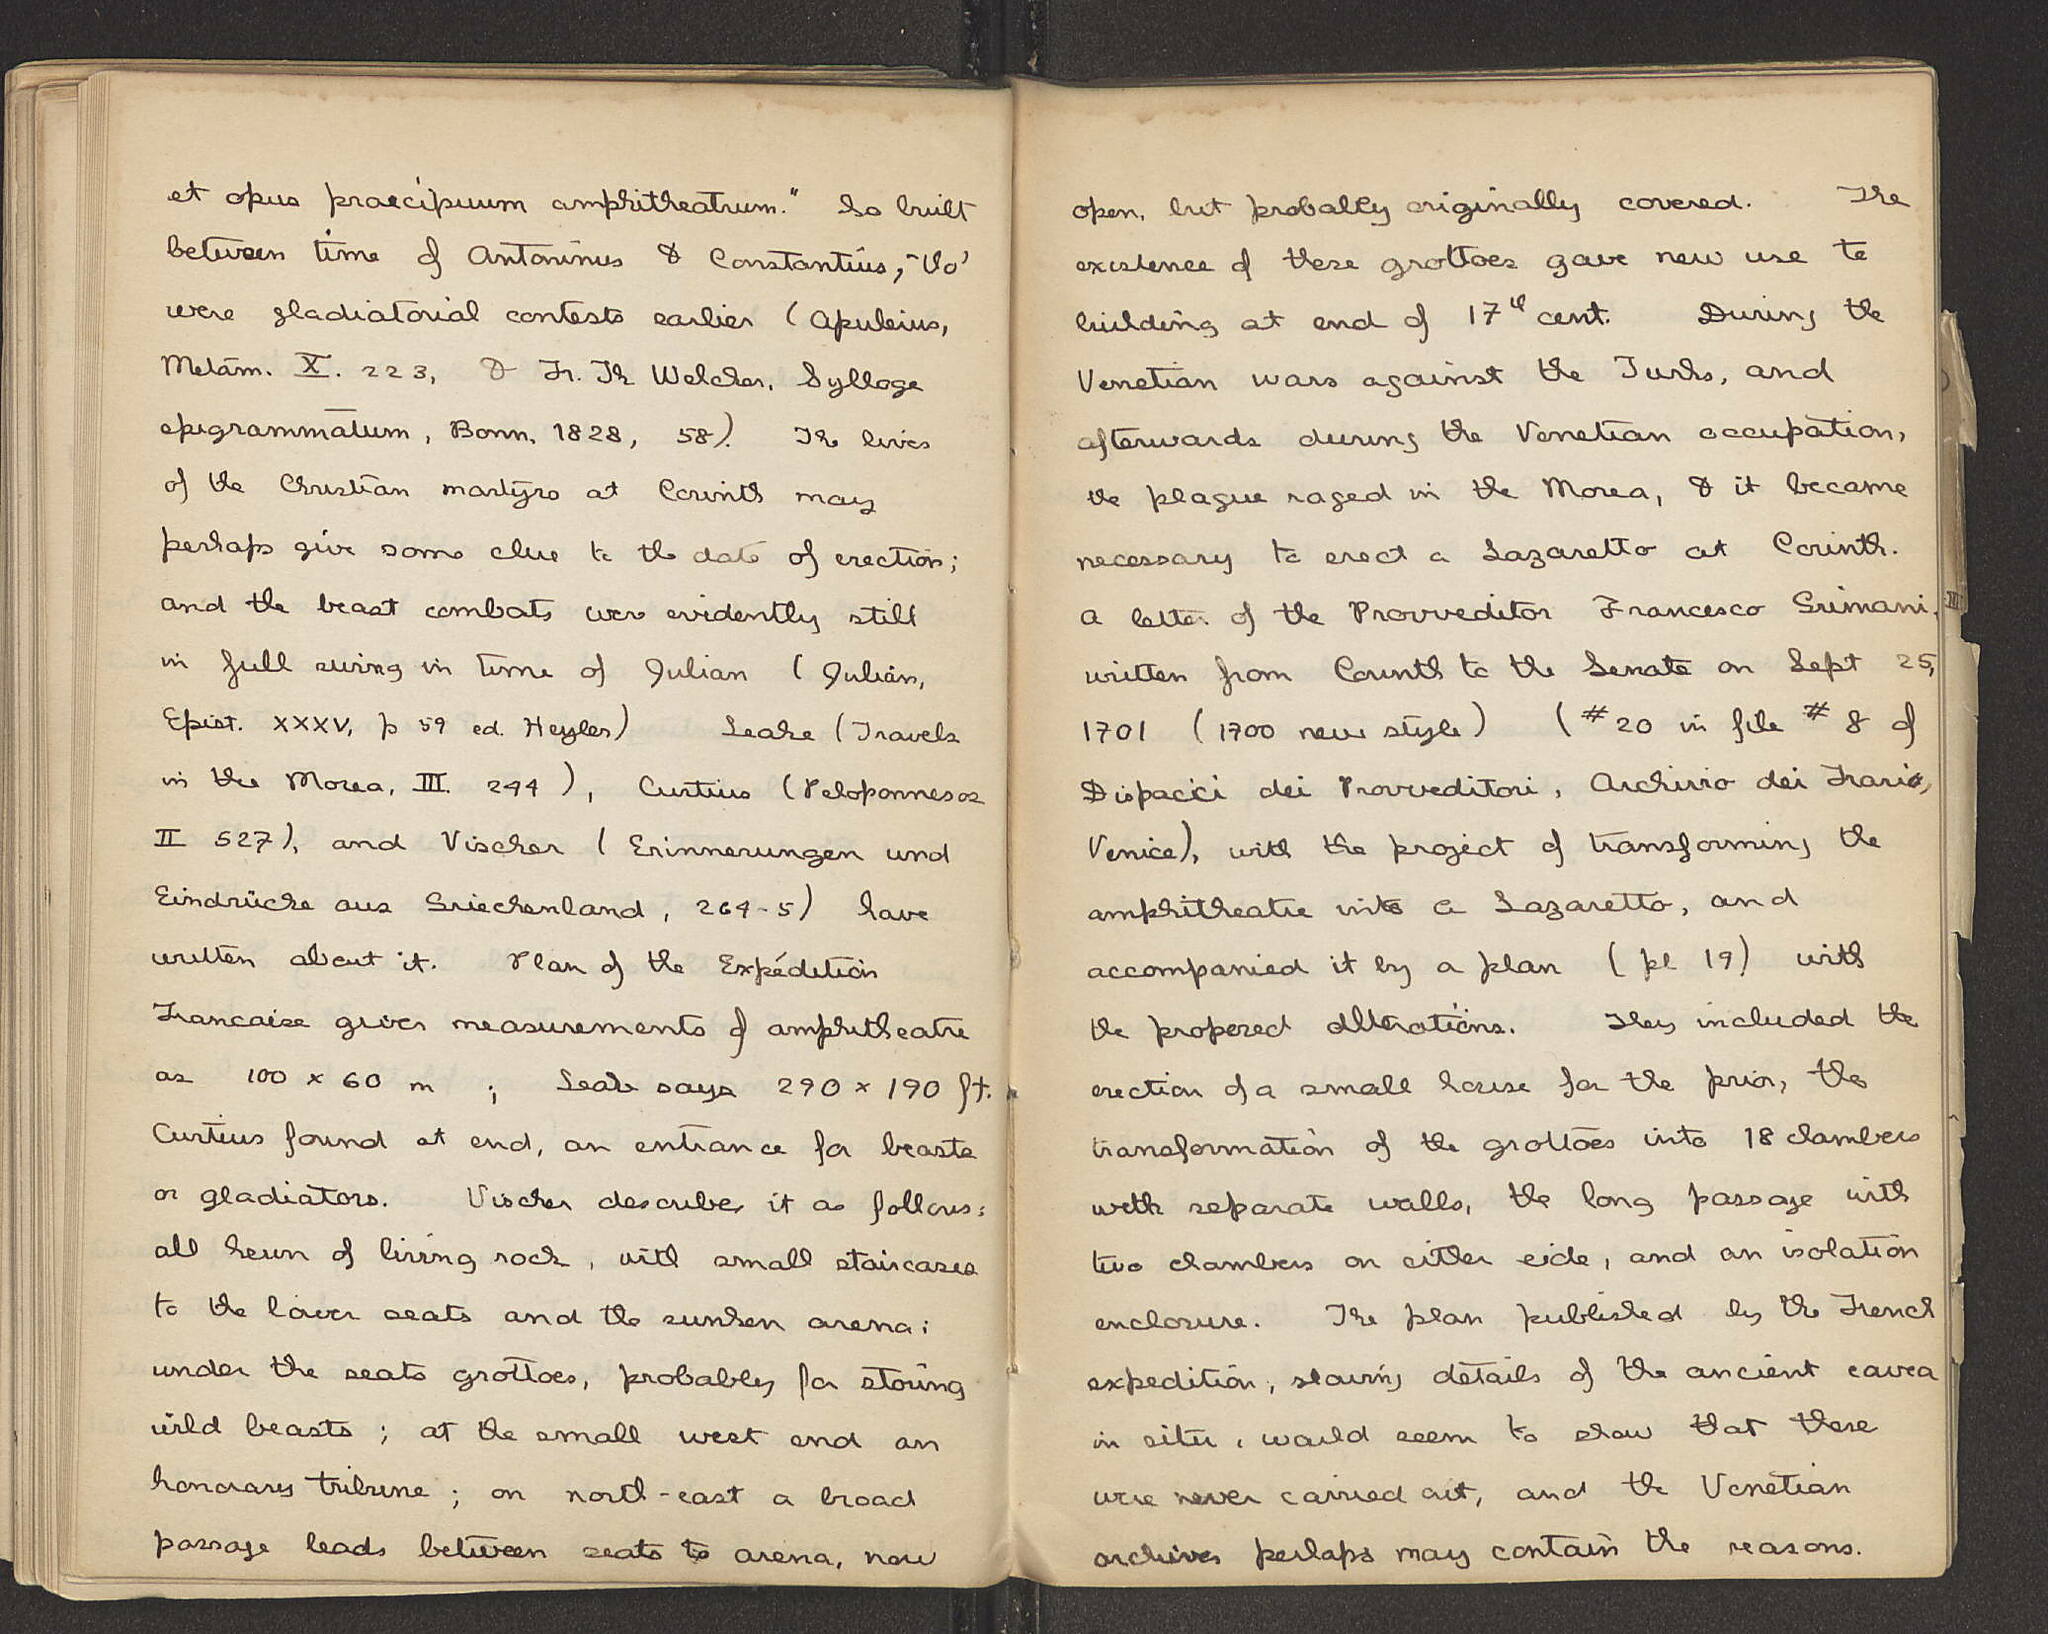 et opus praecipuum amphitheatrum." So built
between time of Antoninus & Constantius, tho'
were gladiatorial contests earlier (Apuleius,
Metam. X. 223, & Fr. Th Welcker, Sylloge
epigrammatum, Bonn, 1828, 58). The lives
of the Christian martyrs at Corinth may
perhaps give some clue to the date of erection;
and the beast combats were evidently still
in full swing in time of Julian (Julian,
Epist. XXXV, p 59 ed. Heyler) Leake (Travels
in the Morea, III. 244), Curtius (Peloponnesos
II 527), and Vischer (Erinnerungen und
Eindrücke aus Griechenland, 264-5) have
written about it. Plan of the Expédition
Francaise gives measurements of amphitheatre
as 100 x 60 m ; Leake says 290 x 190 ft.
Curtius found at end, an entrance for beasts
or gladiators. Vischer describes it as follows:
all hewn of living rock, with small staircases
to the lower seats and the sunken arena;
under the seats grottoes, probably for storing
wild beasts; at the small west end an
honorary tribune; on north-east a broad
passage leads between seats to arena, now
open, but probably originally covered. The
existence of these grottoes gave new use to
building at end of 17th cent. During the
Venetian wars against the Turks, and
afterwards during the Venetian occupation,
the plague raged in the Morea, & it became
necessary to erect a Lazaretto at Corinth.
A letter of the Provveditor Francesco Grimani,
written from Corinth to the Senate on Sept 25,
1701 (1700 new style) (#20 in file #8 of
Dispacci dei Provveditori, Archivio dei Frari,
Venice), with the project of transforming the
amphitheatre into a Lazaretto, and
accompanied it by a plan (pl 19) with
the proposed alterations. They included the
erection of a small house for the prior, the
transformation of the grottoes into 18 chambers
with separate walls, the long passage with
two chambers on either side, and an isolation
enclosure. The plan published by the French
expedition, showing details of the ancient cavea
in situ, would seem to show that these
were never carried out, and the Venetian
archives perhaps may contain the reasons.